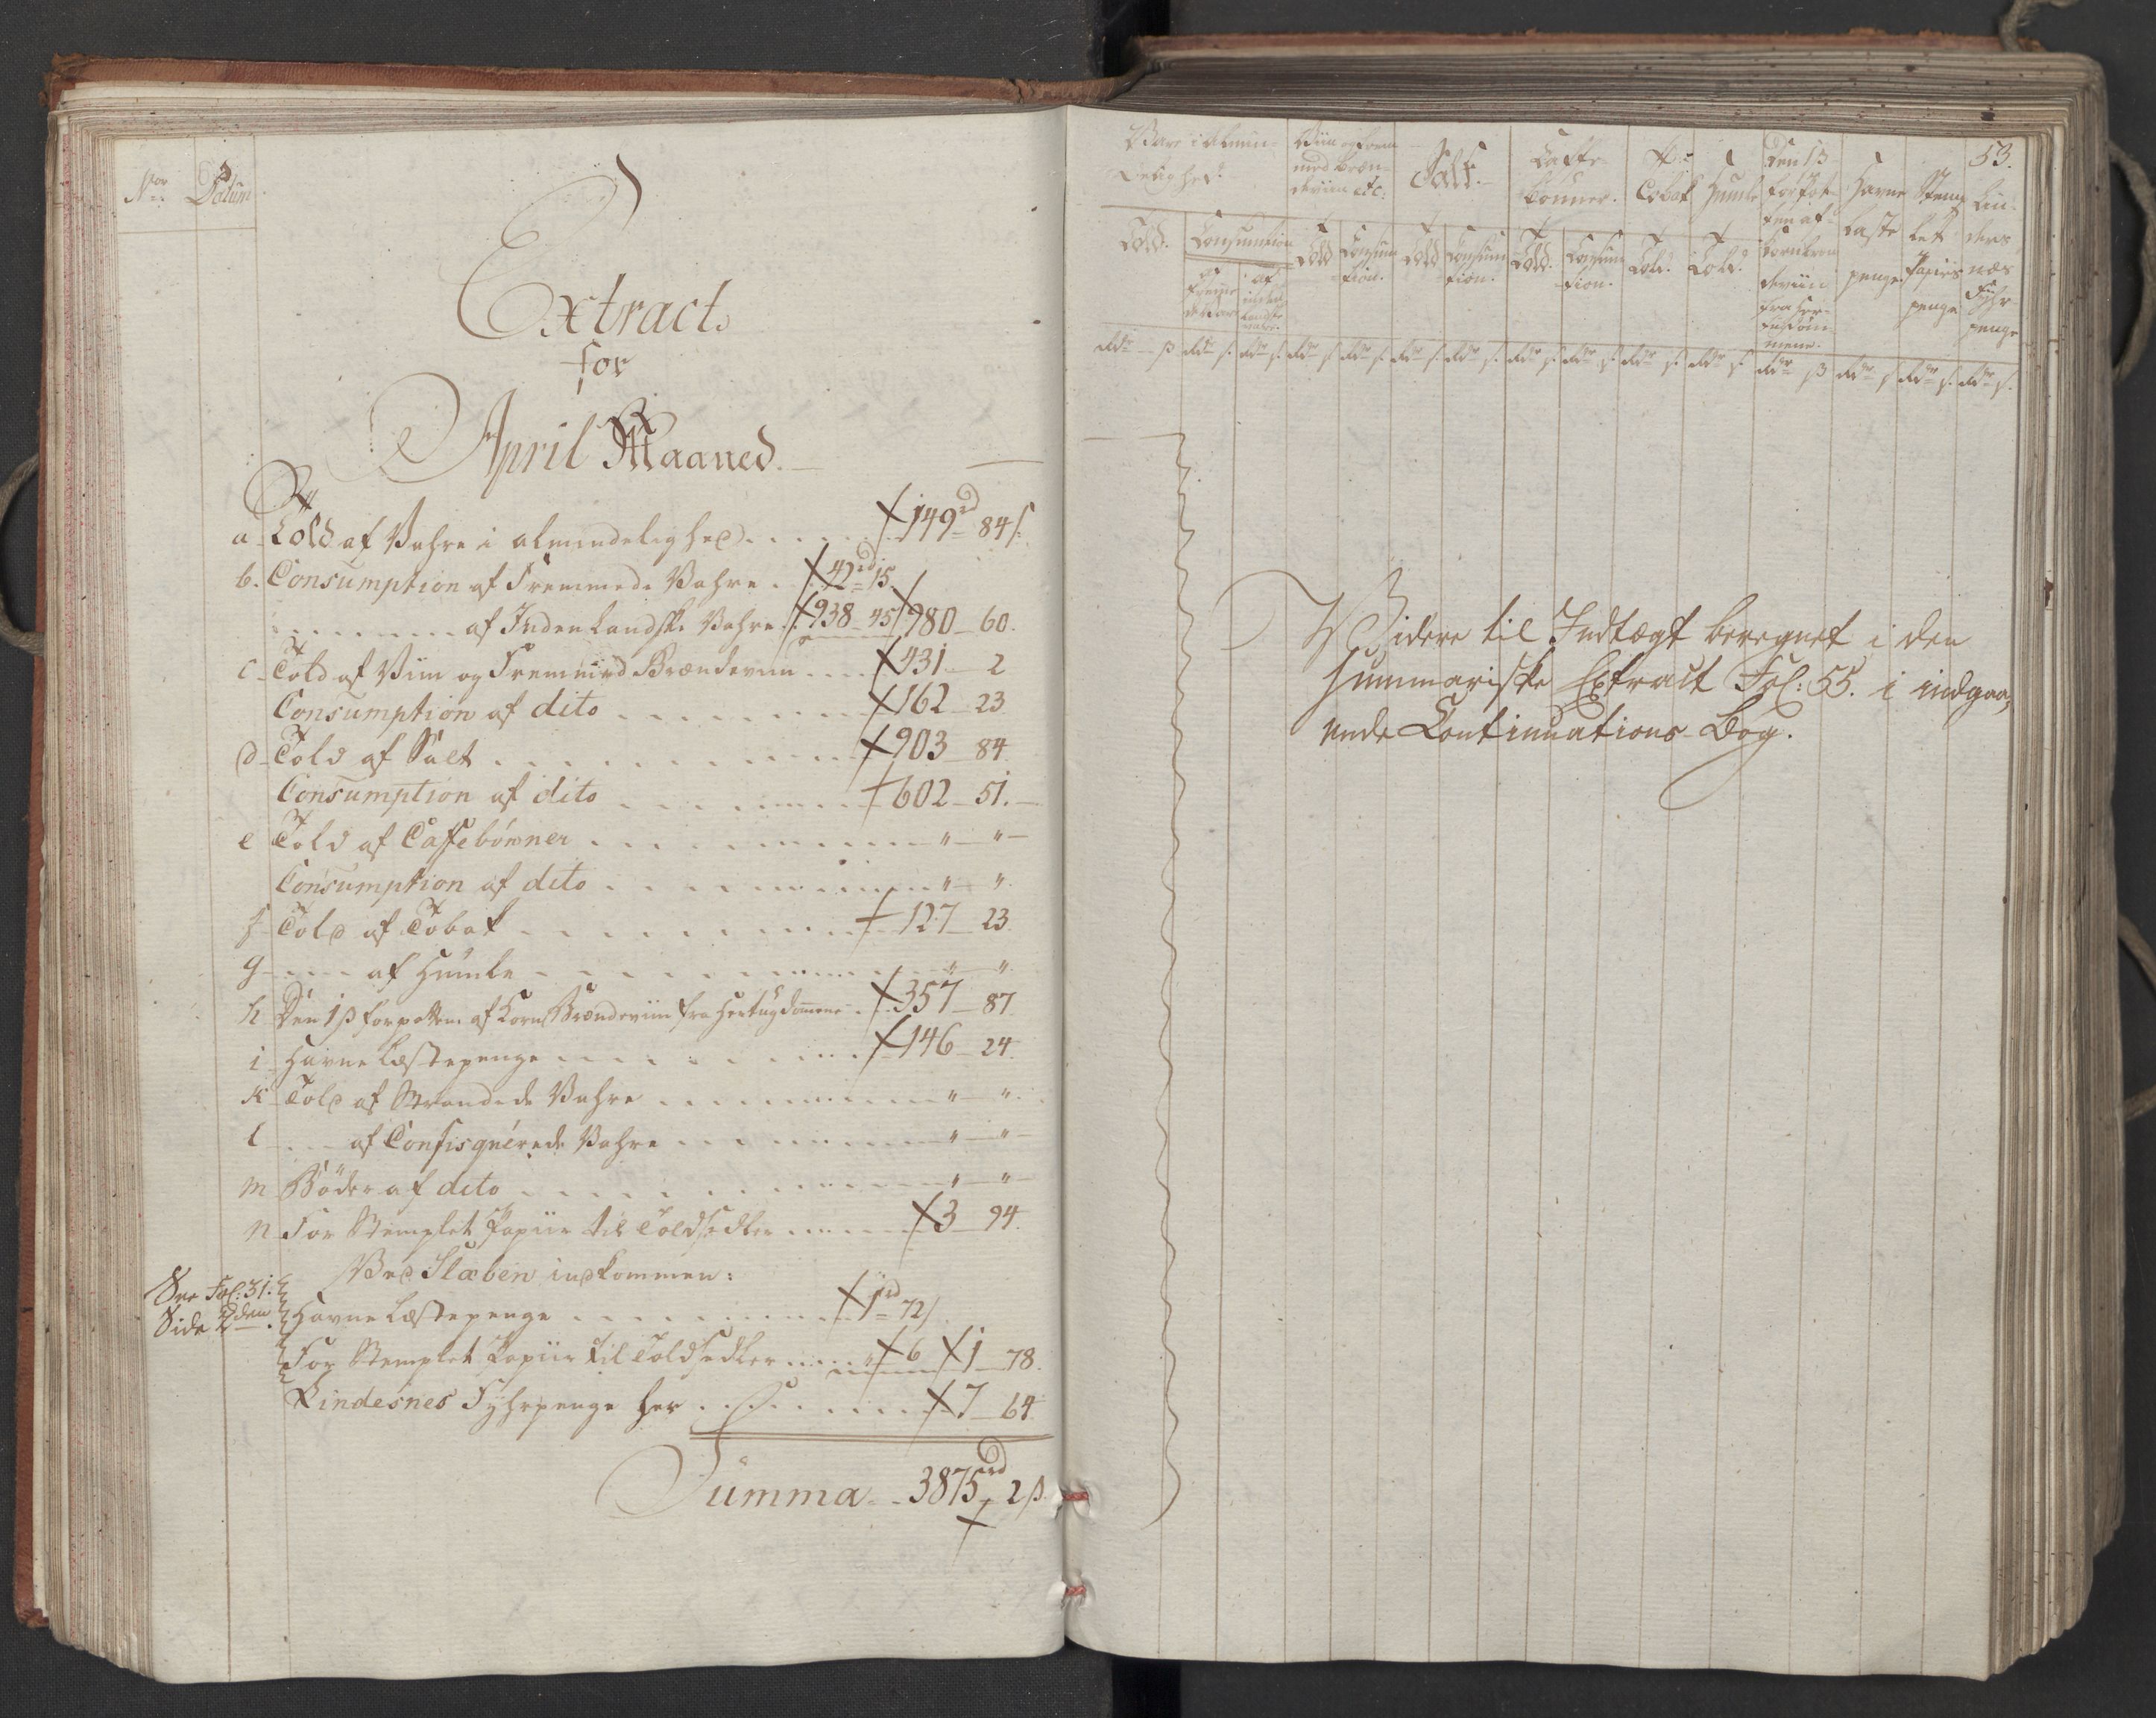 Nor Datum
Extract
for
April Maaned.
a Told af Vahre i almindelighed . . . . . 149rd 84ß
b. Consumption af Fremmede Vahre . 42rd 15
af Indenlandske Vahre . 938 - 45 980 - 60.
c. Told af Viin og Fremmed Brændeviin . . . . 431 - 2
Consumption af dito . . . . . . 162 - 23
d. Told af Salt . . . . . . 903 - 84
Consumption af dito . . . . . . 602 - 51.
e Told af Caffebønner . . . . . . " - "
Consumption af dito . . . . . . " - "
f Told af Tobak . . . . . . 127 - 23.
g - - - af Humle - . . . . . . " "
h Den 1ß for potten af Korn Brændeviin fra Hertugdømene . 357 - 87
i Havne Læstepenge . . . . . . 146 - 24.
K Told af Strandede Vahre . . . . . . " - "
l - - - af Confisquerede Vahre . . . . . . " - "
m Bøder af dito . . . . . . " - "
n For Stemplet Papiir til Toldsedler . . . . . . 3 - 94.
Ved Flæben indkommen:
See Fol: 31.
Side 2den.
Havne Læstepenge . . . . . . 1rd 72ß
For Stemplet Papiir til Toldsedler . . . . . " 6 1 - 78.
Lindesnes Fyhrpenge her . . . . . . 7 - 64.
Summa - - 3875rd 2ß.
53.
Vare i Almin-
delighed.
Viin og Frem
med Bræn-
deviin etc.
Salt.
Caffe-
bønner.
Tobak
Humle
Den 1ß
for Pot-
ten af
Kornbræn
deviin
fra Her-
tugdøm-
mene.
Havne
Læste
penge.
Stemp
let
Papiirs
penge
Lin-
des
næs
Fyhr-
penge
Told. Consumtion Told Consum-tion. Told Consum-tion. Told. Consum-tion. Told. Told.
Fremme
de Vare
af
inden
landske
Vare.
Rdr ß Rdr ß. Rdr ß. Rdr ß Rdr ß. Rdr ß Rdr ß. Rdr ß. Rdr ß. Rdr ß. Rdr ß. Rdr ß Rdr ß Rdr ß. Rdr ß.
Widere til Indtægt beregnet i den
Summariske Extract Fol: 55. i indgaa-
ende Continuations Bog.